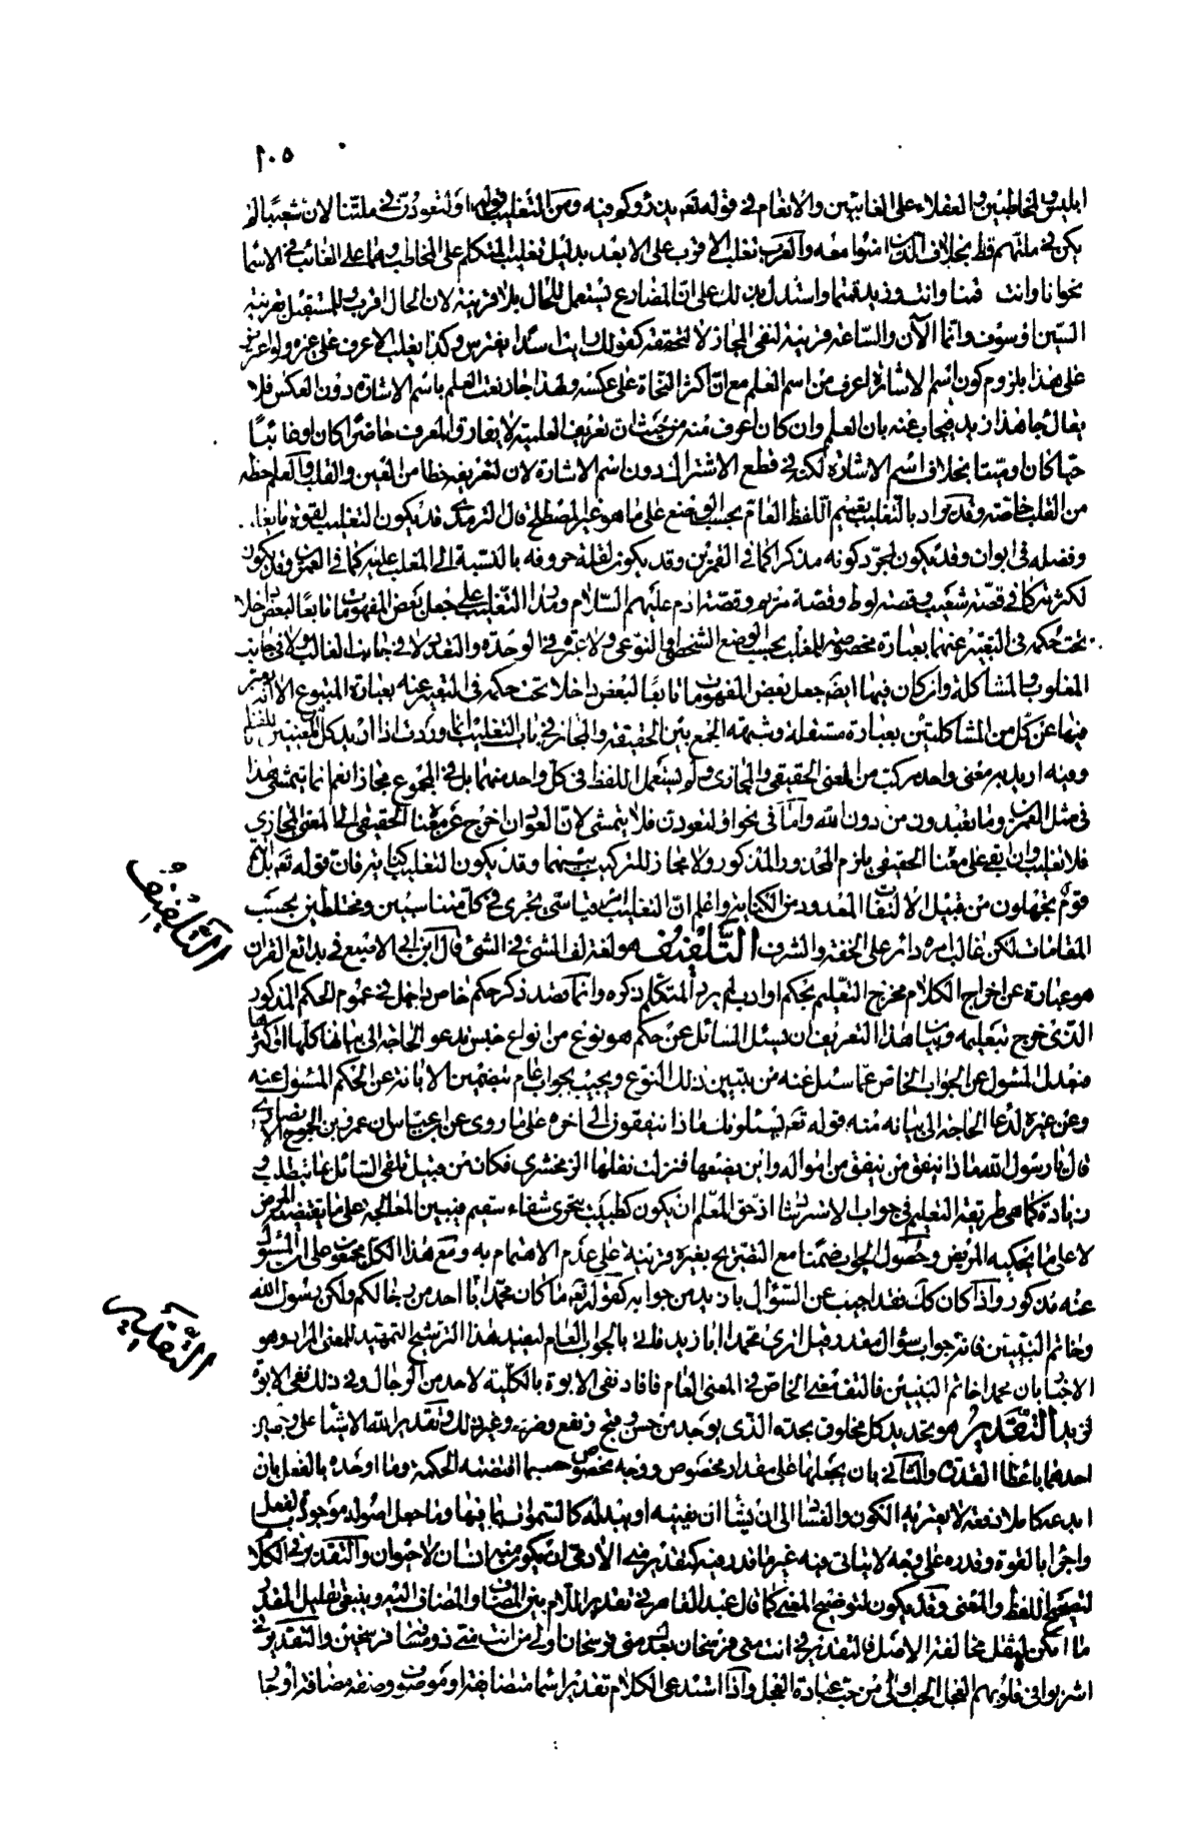 ٢٠٥
ابليس والمخاطبين والعقلاء على الغائبين والانعام في قوله تعـ يذرؤكم فيه ومن التغليب قوله او لتعودن في ملتنا لان شعيبا لم
يكن في ملتهم قط بخلاف الذين امنوا معه والعرب تغلب الاقرب على الابعد بدليل تغليب المتكلم على المخاطب وهما على الغائب في الاسما
نحو انا وانت قمنا وانت وزيد قمتما واستدل بذلك على ان المضارع يستعمل للحال بلا قرينة لان الحال اقرب وللمستقبل بقرينة
السين او سوف وانما الآن والساعة قرينة لنفي المجاز لا لتحققه كقولك رايت اسدا يفترس وكذا يغلب الاعرف على غيره
على هذا يلزم كون اسم الاشارة اعرف من اسم العلم مع ان اكثر النحاة على عكسه ولهذا جاز نعت العلم باسم الاشارة دون العكس فلا
يقال جا هذا زيد فيجاب عنه بان العلم وان كان اعرف منه من حيث ان تعريف العلمية لا يفارق المعرف حاضرا كان او غائبا
حيا كان او ميتا بخلاف اسم الاشارة لكنه في قطع الاشتراك دون اسم الاشارة لان لتعريفه حظا من العين والقلب والعلم حظه
من القلب خاصة وقد يراد بالتغليب تعميم اللفظ العام بحسب الوضع على ما هو غير المصطلح قال قد يكون التغليب لقوة ما يغلب
وفضله في ابوان وقد يكون لمجرد كونه مذكرا كما في القمرين وقد يكون لقلة حروفه بالنسبة الى المغلب عليه كما في العمرين وقد يكون
لكثرته كما في قصة شعيب وقصة لوط وقصة مريم وقصة ادم عليهم السلام ومدار التغليب على جعل بعض المفهومات تابعا لبعض داخلا
تحت حكمه في التعبير عنهما بعبارة مخصوصة للمغلب بحسب الوضع الشخصي او النوعي ولا عبرة في الوحدة والتعدد لا في جانب الغالب ولا في جانب
المغلوب والمشاكلة وان كان فيها ايضا جعل بعض المفهومات تابعا لبعض داخلا تحت حكمه في التعبير عنه بعبارة المتبوع الا انه يعبر
فيها عن كل من المشاكلتين بعبارة مستقلة وشبهة الجمع بين الحقيقة والمجاز في باب التغليب انما وردت اذا اريد كل المعنيين باللفظ
وفيه اريد به معنى واحد مركب من المعنى الحقيقي والمجازي ولم يستعمل اللفظ في كل واحد منهما بل في المجموع مجازا نعم انما يتمشى هذا
في مثل العمرين وما تعبدون من دون الله واما في نحو او لتعودن فلا يتمشى لان العود ان اخرج عن معناه الحقيقي الى المعنى المجازي
فلا تغليب وان بقي على معناه الحقيقي يلزم المحذور المذكور ولا مجاز للتركيب بينهما وقد يكون التغليب كناية فان قوله تعـ بل انتم
قوم تجهلون من قبيل الالتفات المعدود من الكناية واعلم ان التغليب امر قياسي يجري في كل متناسبين ومختلطين بحسب
المقامات لكن غالب امره دائر على الخفة والشرف التَّلْفِيف هو لغة لف الشئ في الشئ قال ابن ابي الاصبع في بدائع القران
هو عبارة عن اخراج الكلام مخرج التعليم بحكم او ادب لم يرد المتكلم ذكره وانما قصد ذكر حكم خاص داخل في عموم الحكم المذكور
الذي خرج بتعليمه وبيان هذا التعريف ان يسئل السائل عن حكم هو نوع من انواع جنس تدعو الحاجة الى بيانها كلها او اكثرها
فيعدل المسئول عن الجواب الخاص عما سئل عنه من تبيين ذلك النوع ويجيب بجواب عام يتضمن الابانة عن الحكم المسئول عنه
وعن غيره لدعا الحاجة الى بيانه منه قوله تعـ يسئلونك ماذا ينفقون الى اخره على ما روى عن ابن عباس ان عمرو بن الجموح الانصاري
قال يا رسول الله ماذا ننفق من اموالنا واين نضعها فنزلت نقلها الزمخشري فكان من قبيل تلقي السائل بما يتطلب
زيادة كما هي طريقة التعليم في جواب الاسترشاد اذ حق المعلم ان يكون كطبيب يتحرى شفاء سقيم فيبين المعالجة على ما يقتضيه المرض
لا على ما يحكيه المريض وحصول الجواب ضمنا مع التصريح بغيره قرينة على عدم الاهتمام به ومع هذا الكلام محمول على ان المسئول
عنه مذكور واذا كان كك فقد اجيب عن السؤال بازيد من جوابه كقوله تعـ ما كان محمد ابا احد من رجالكم ولكن رسول الله
وخاتم النبيين فانه جواب سؤال مقدر وقيل اترى محمدا ابا زيد فاتى بالجواب العام ليفيد هذا الترشيح التمهيد للمعنى المراد وهو
الاخبار بان محمدا خاتم النبيين فالتف معنى الخاص في المعنى العام فافاد نفي الابوة بالكلية لاحد من الرجال وفي ذلك نفي الابوة
لزيد التَّقْدِير هو تحديد كل مخلوق بحده الذي يوجد من حسن وقبح ونفع وضر وغير ذلك وتقدير الله الاشيا على وجهين
احدهما باعطا القدرة والثاني بان يجعلها على مقدار مخصوص ووجه مخصوص حسبما اقتضته الحكمة وما اوجده بالفعل بان
ابدعه كاملا دفعة لا يعتريه الكون والفساد الى ان يشا ان يفنيه او يبدله كالسموات بما فيها وما جعل اصوله موجودة بالفعل
واجزا بالقوة وقدره على وجه لا يتاتى فيه غير ما قدر فيه كتقدير مني الآدمي ان يكون منه انسان لا حيوان والتقدير في الكلام
لتصحيح اللفظ والمعنى وقد يكون لتوضيح المعنى كما قال عبد القاهر في تقدير اللام بين المضاف والمضاف اليه وينبغي تقليل المقدر
ما امكن ليقل مخالفة الاصل فالتقدير في انت مني فرسخان بعدك مني فرسخان اولى من انت مني ذو مسافة فرسخين والتقدير في
اشربوا في قلوبهم العجل الحب اولى من حب عبادة العجل واذا استدعى الكلام تقدير اسما متضايفة او موصوف وصفة مضافة او جا
التَّلْفِيفُ
التَّقْدِير